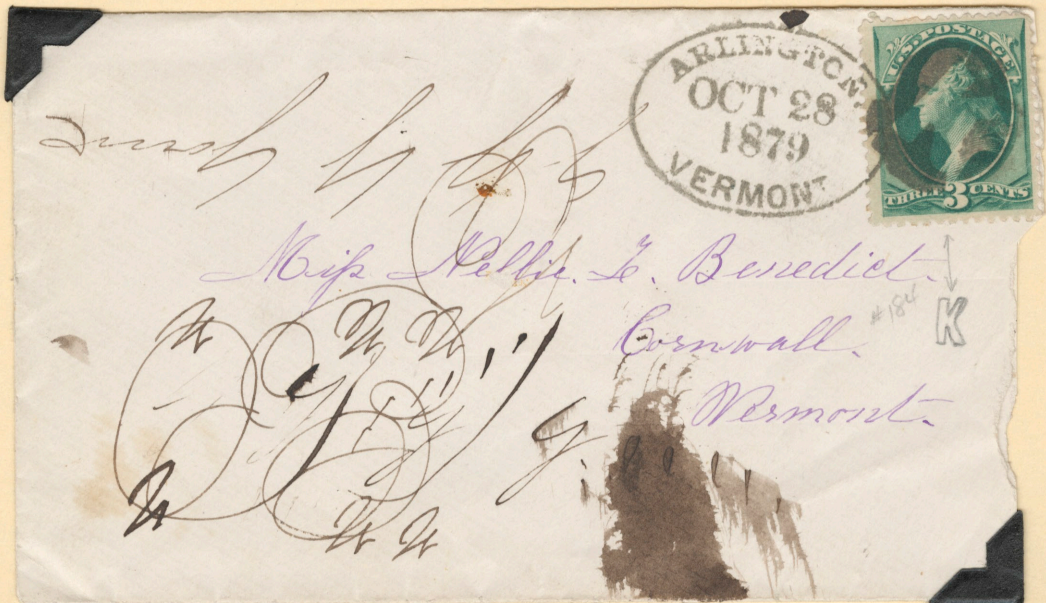 ARLINGTON
OCT 28
1879
VERMONT
U.S. POSTAGE
THREE 3 CENTS
Miss Nellie. E. Benedict.
Cornwall.
Vermont.
#184
K